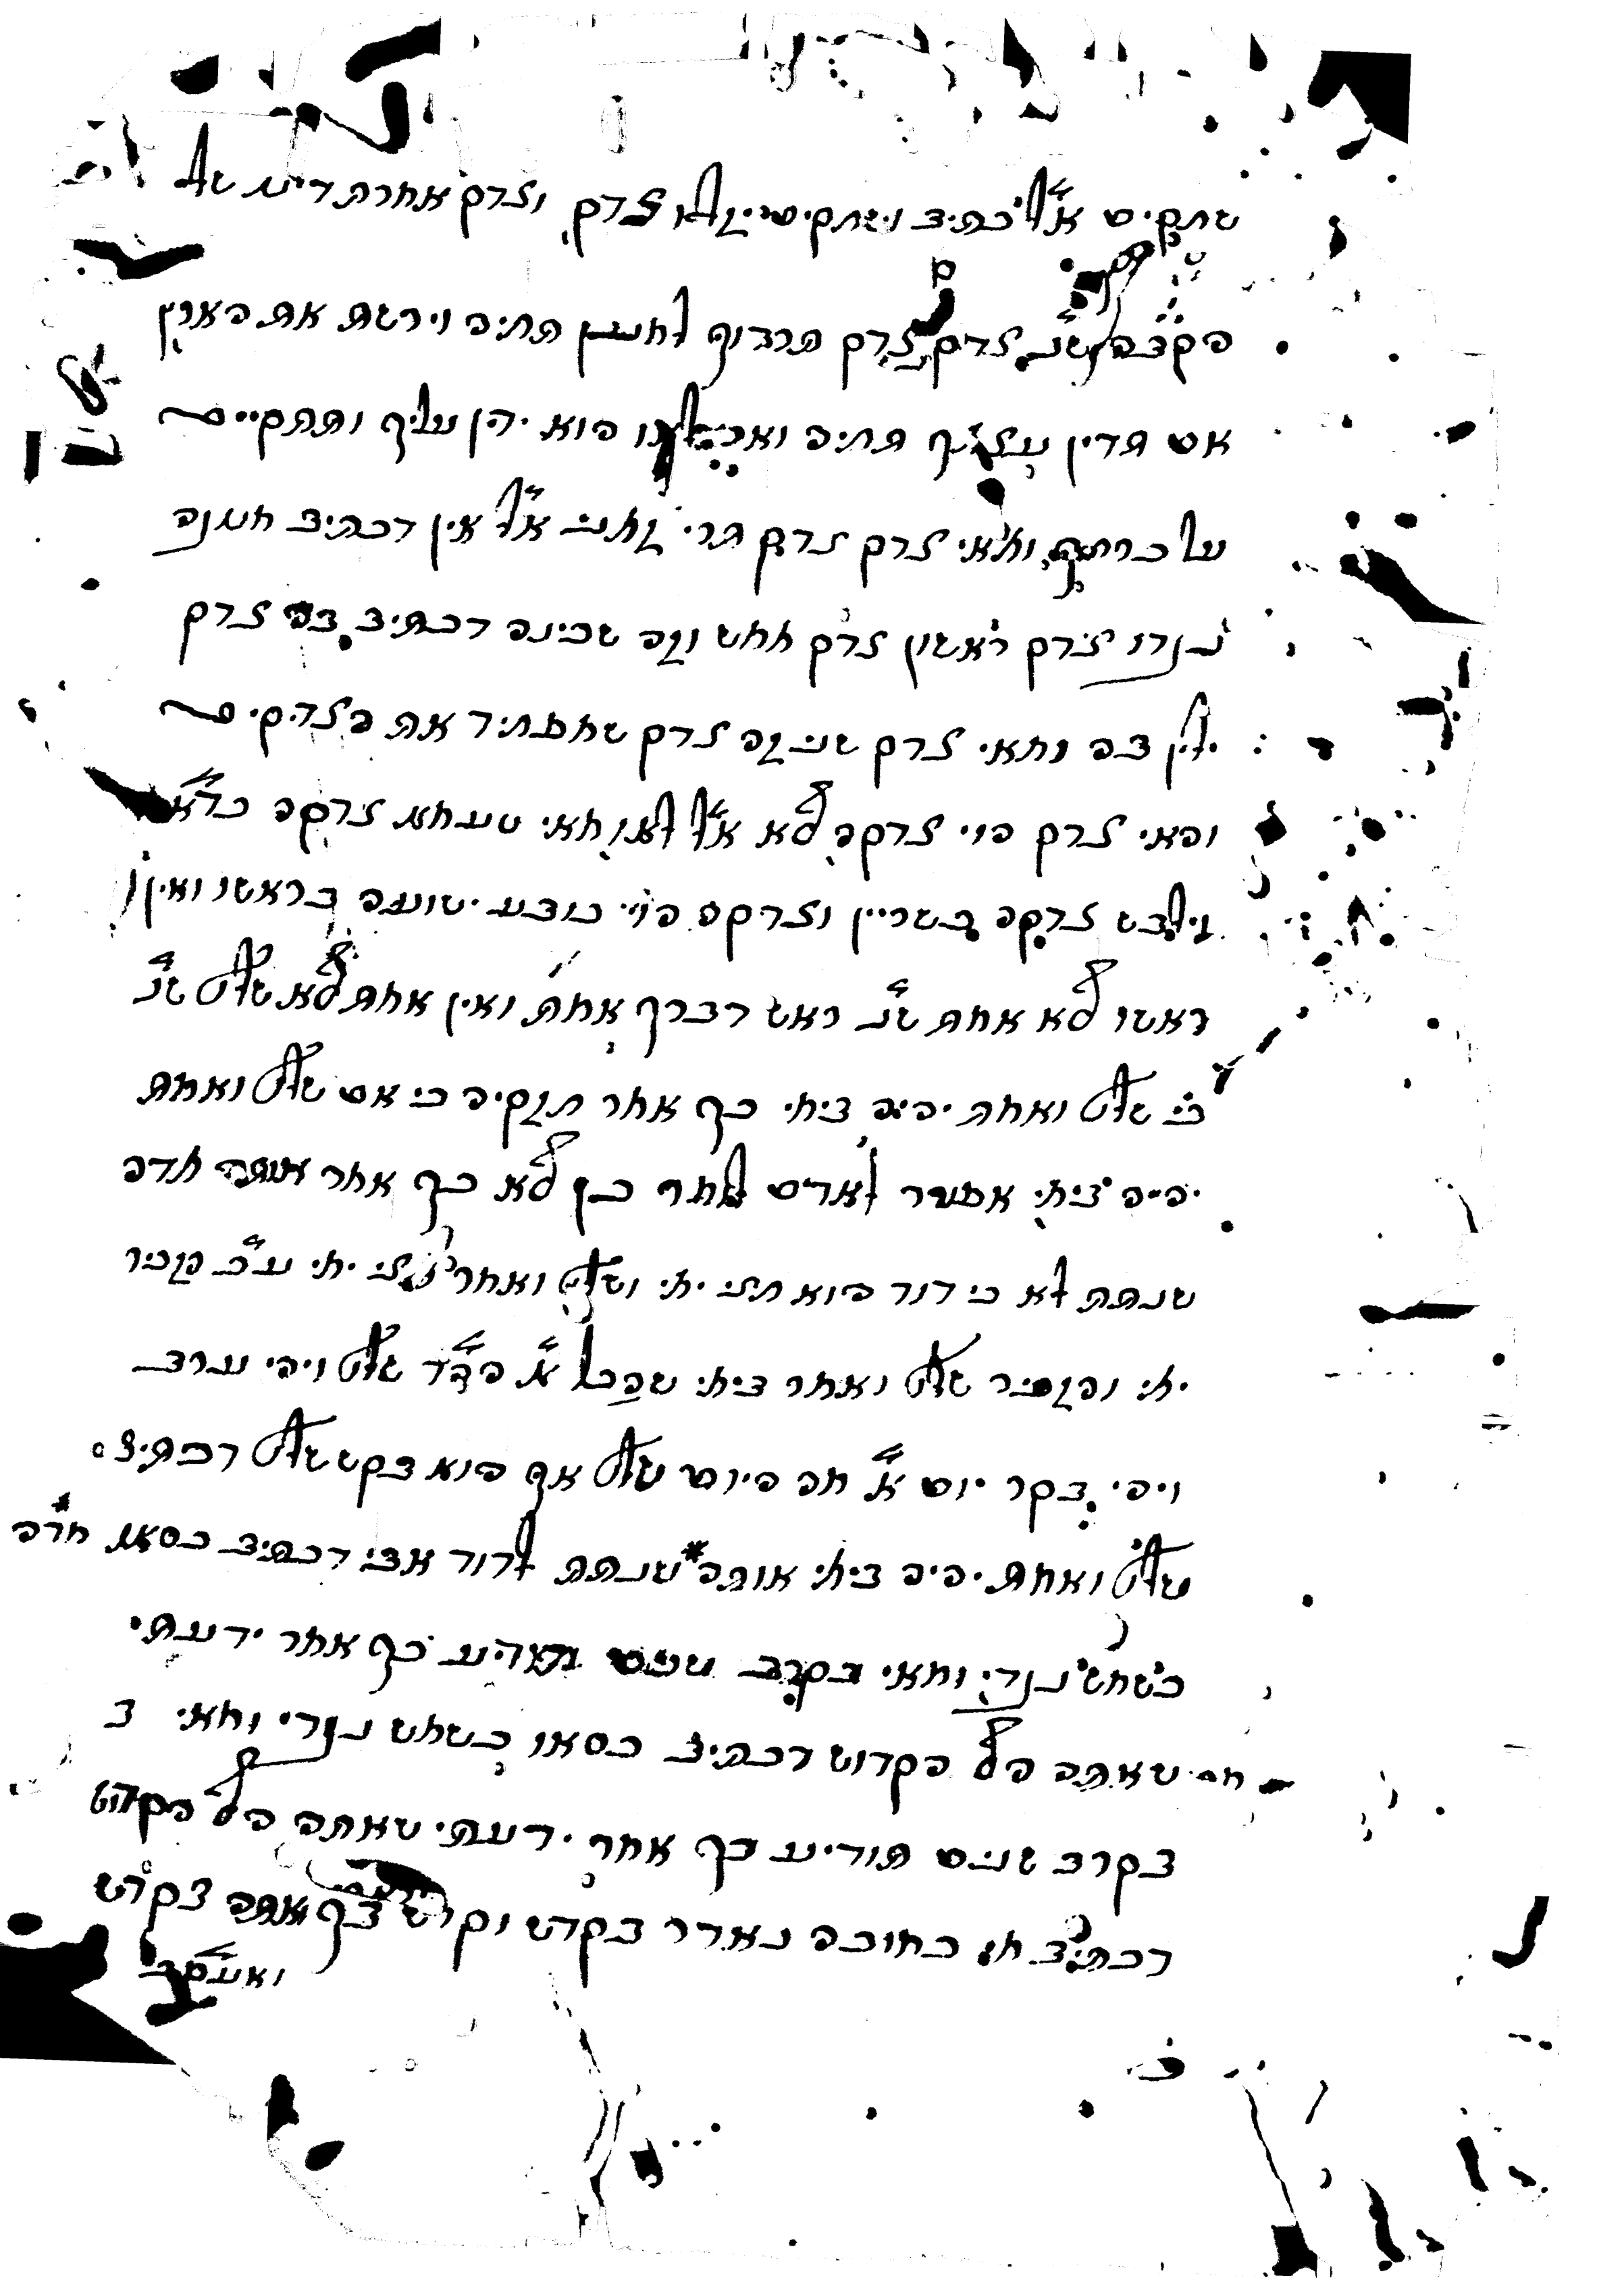 שחקים א״ל כתיב ושחקים יזלו צדק וצדק אחרת דינו של
הקב״ה שנ׳ צדק צדק תרדוף למען תחיה וירשת את הארץ
אם תדין עצמך תחיה ואם לאו הוא ידין עליך ותתקיים
על כרחך ומאי צדק צדק תרי זמני א״ל אין דכתיב חמנה
נגדו צדק ראשון צדק ממש וזה שכינה דכתיב בה צדק
ילין בה ומאי צדק שני זה צדק שמפחיד את הצדיקים
והאי צדק הוי צדקה אלא א״ל לאו מאי טעמא צדקה כדא׳
וילבש צדקה כשריין וצדקה הויי כובע ישועה בראשו ואין
ראשו אלא אמת שנ׳ ראש דברך אמת ואין אמת אלא שלום שנ׳
כי שלום ואמת יהיה בימי כך אמר חזקיה כי אם שלום ואמת
יהיה בימי אפשר לאדם לומר כן אלא כך אמר אותה מדה
שנתת לא כי דוד הוא חצי ימי ושלום ואמת חצי ימי ע״כ הזכיר
ימי והזכיר שלום ואמר בימי שהכל א׳ הה״ד שלום ויהי ערב
ויהי בקר יום א׳ מה היום שלום אף הוא בקש שלום דכתיב
שלום ואמת יהיה בימי אותה שנתת לדוד אבי דכתיב כסאו
כשמש נגדי ומאי בקרב שנים תודיע כך אמר ידעתי
שאתה האל הקדוש דכתיב כסאו כשמש נגדי ומאי ב
בקרב שנים תודיע כך אמר ידעתי שאתה האל הקדוש
דכתיב מי כמוכה נאדר בקדש וקדש בך ואתה בקדש
ואע״פ